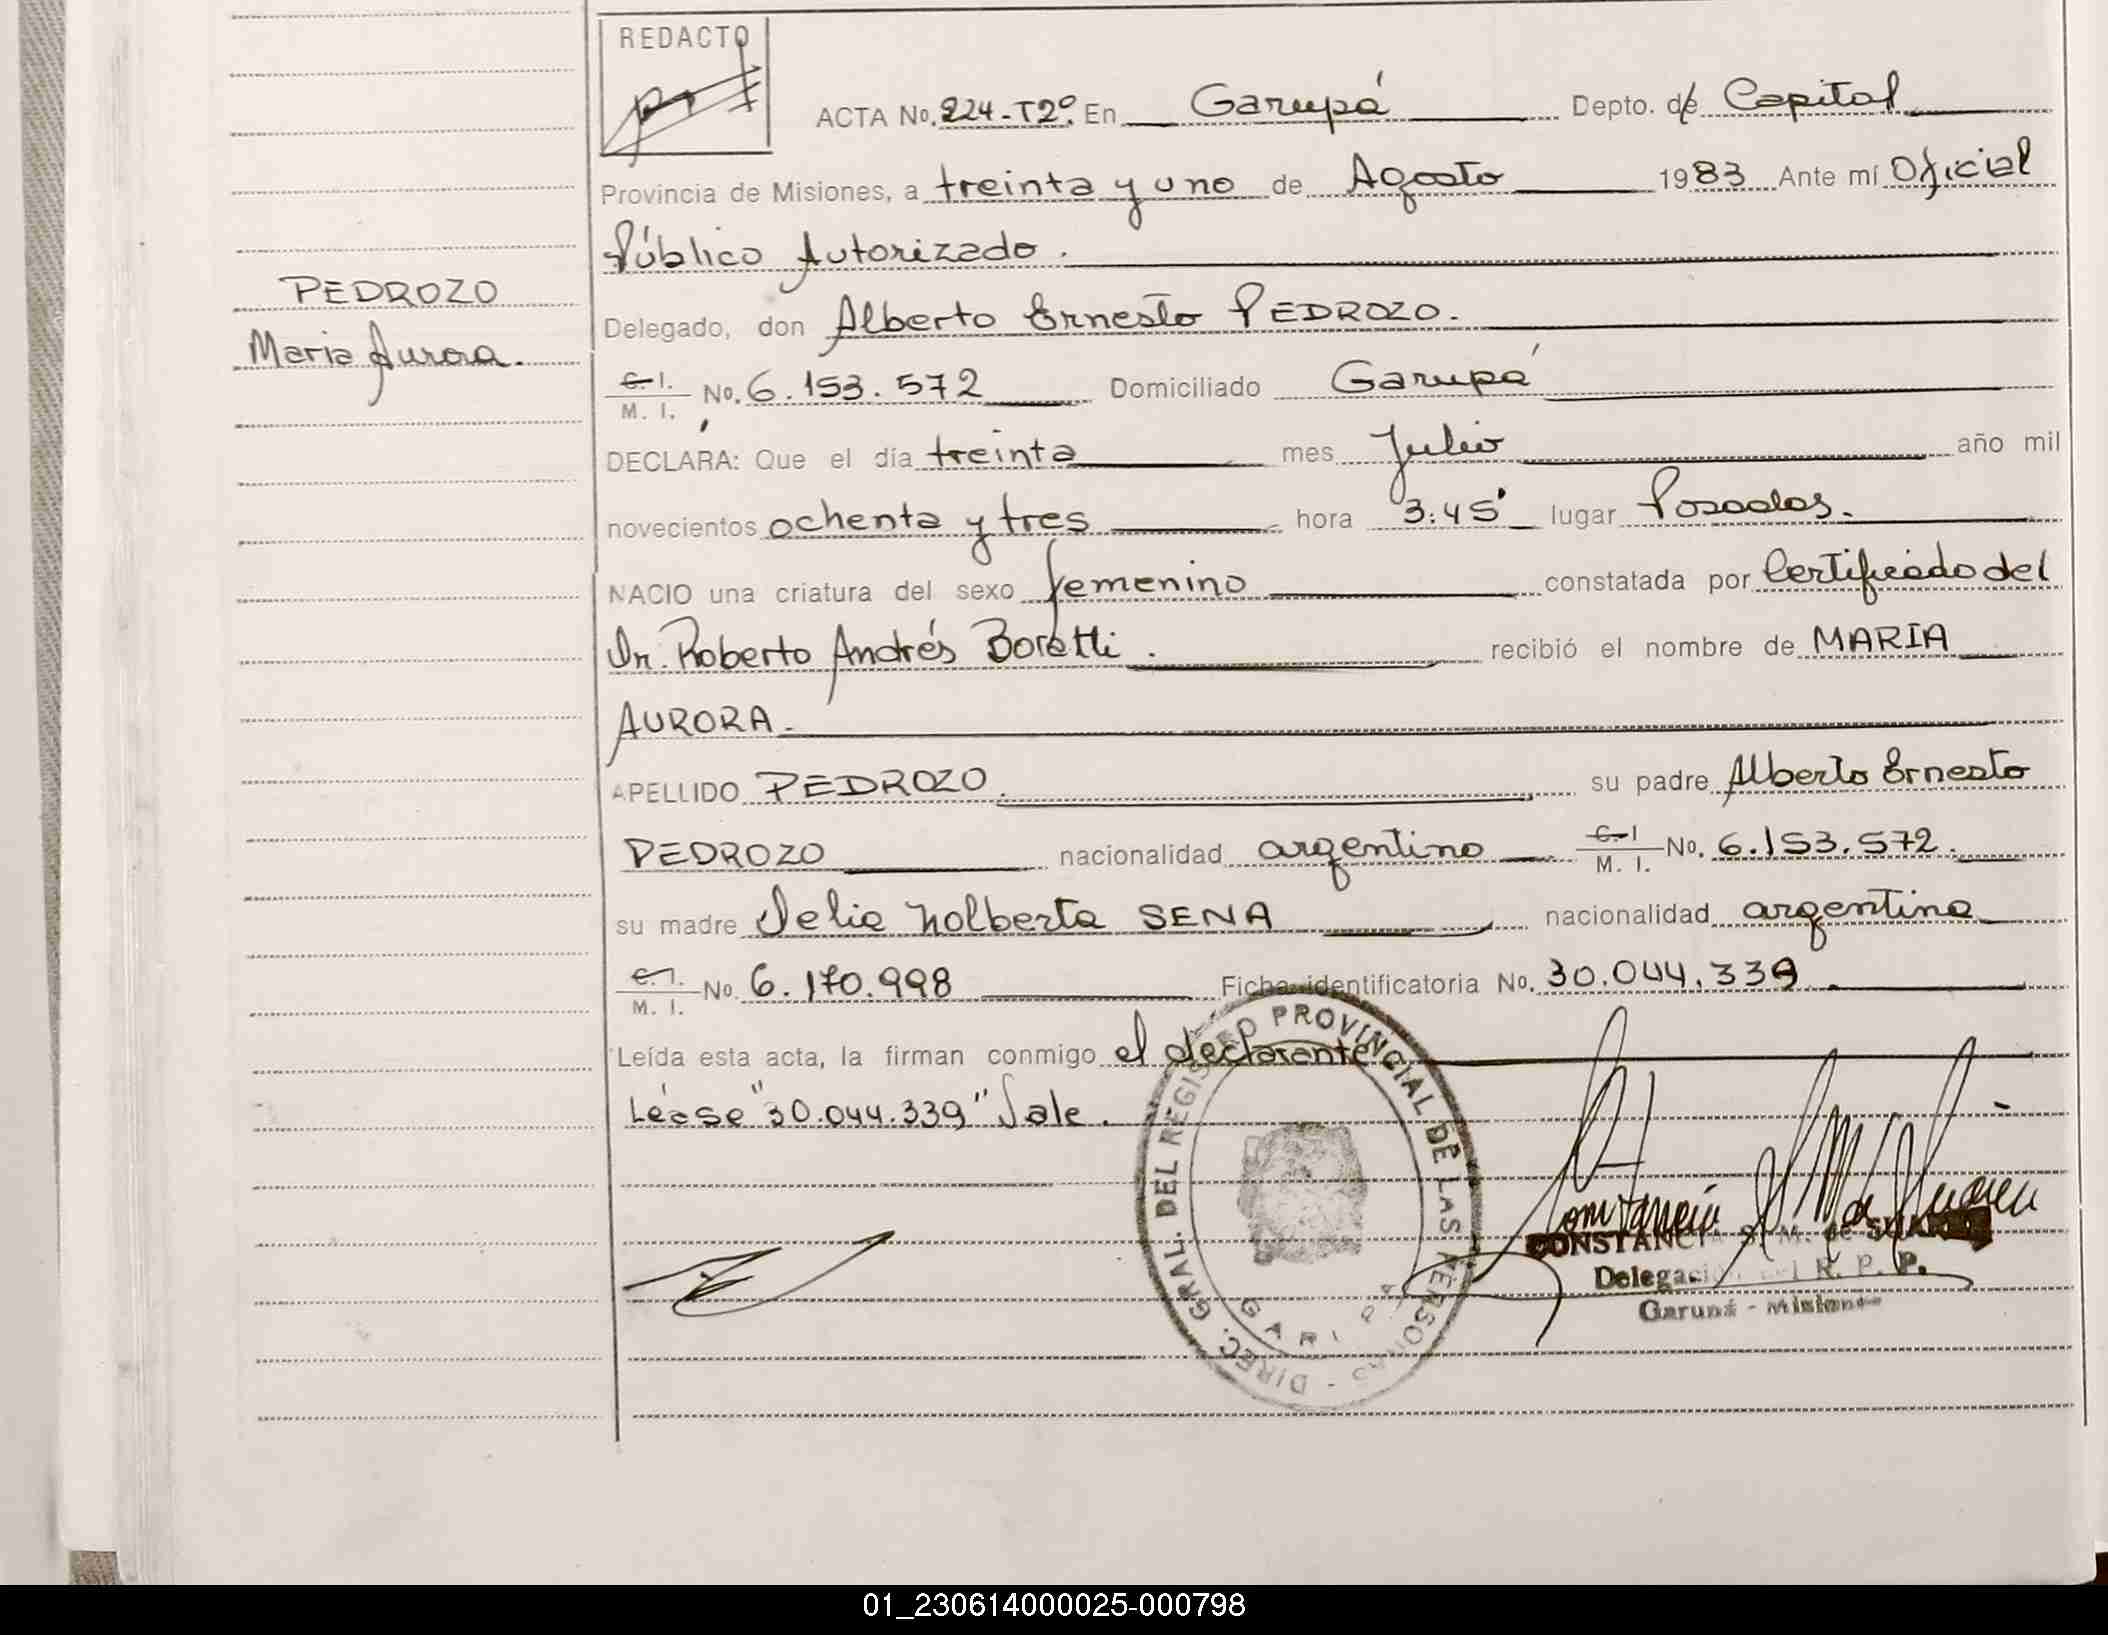 REDACTO
ACTA No. 224-T2º. En Garupá Depto. de Capital
Provincia de Misiones, a treinta y uno de Agosto 1983 Ante mí Oficial
Público Autorizado.
PEDROZO
Maria Aurora.
Delegado, don Alberto Ernesto PEDROZO.
C. I. / M. I. No. 6.153.572 Domiciliado Garupá
DECLARA: Que el día treinta mes Julio año mil
novecientos ochenta y tres hora 3:45' lugar Posadas.
NACIO una criatura del sexo femenino constatada por Certificado del
Dr. Roberto Andrés Boretti. recibió el nombre de MARIA
AURORA.
APELLIDO PEDROZO. su padre Alberto Ernesto
PEDROZO nacionalidad argentino C. I / M. I. No. 6.153.572.
su madre Delia Nolberta SENA nacionalidad argentina
C. I. / M. I. No. 6.170.998 Ficha identificatoria No. 30.044.339.
Leída esta acta, la firman conmigo el declarante
Léase "30.044.339" Vale.
DIREC. GRAL. DEL REGISTRO PROVINCIAL DE LAS PERSONAS -
GARUPA
CONSTANCIA S. M. de
Delegación del R. P. P.
Garupá - Misiones
01_230614000025-000798